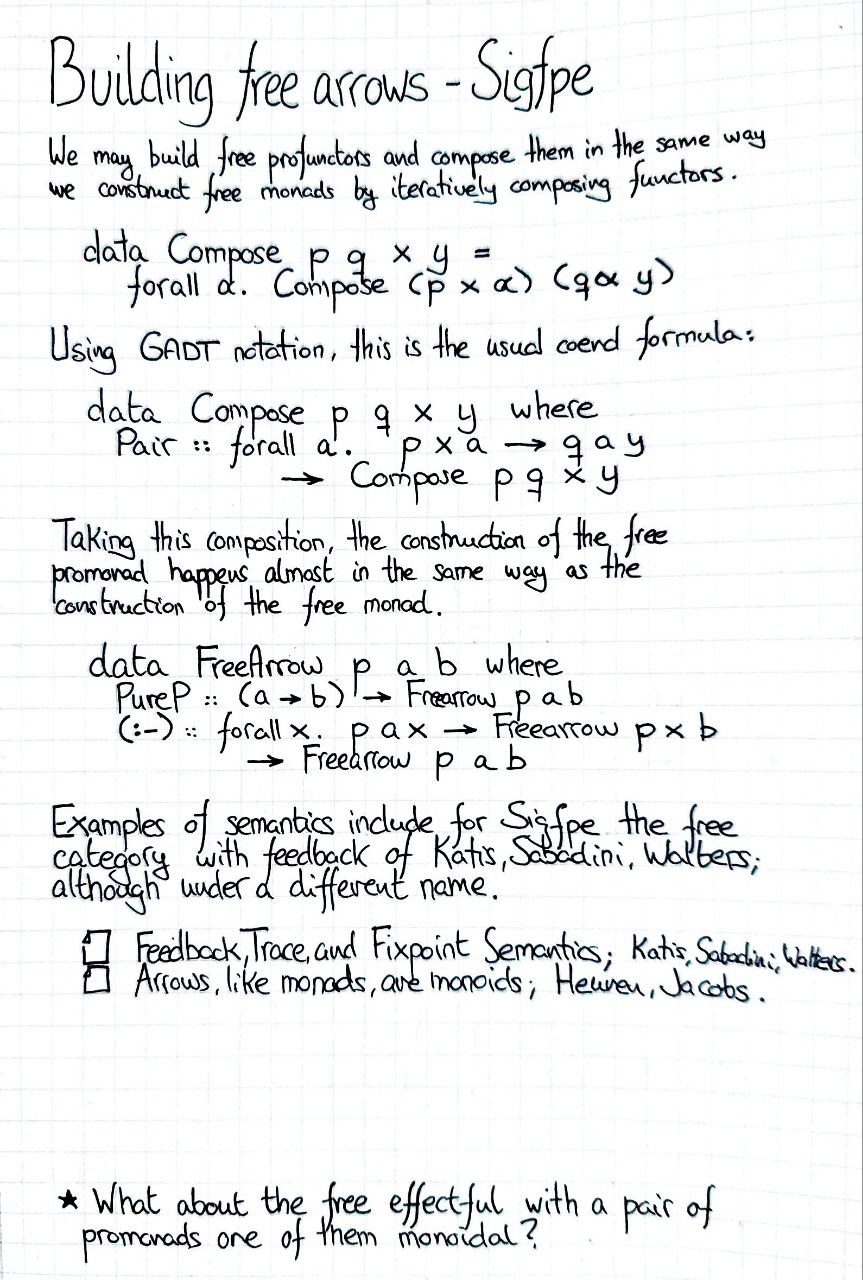 Building free arrows - Sigfpe
We may build free profunctors and compose them in the same way
we construct free monads by iteratively composing functors.
data Compose p q x y =
forall α. Compose (p x α) (q α y)
Using GADT notation, this is the usual coend formula:
data Compose p q x y where
Pair :: forall a. p x a → q a y
→ Compose p q x y
Taking this composition, the construction of the free
promonad happens almost in the same way as the
construction of the free monad.
data FreeArrow p a b where
PureP :: (a → b) → Freearrow p a b
(:-) :: forall x. p a x → Freearrow p x b
→ Freearrow p a b
Examples of semantics include for Sigfpe the free
category with feedback of Katis, Sabadini, Walters;
although under a different name.
☐ Feedback, Trace, and Fixpoint Semantics; Katis, Sabadini, Walters.
☐ Arrows, like monads, are monoids; Heunen, Jacobs.
★ What about the free effectful with a pair of
promonads one of them monoidal?